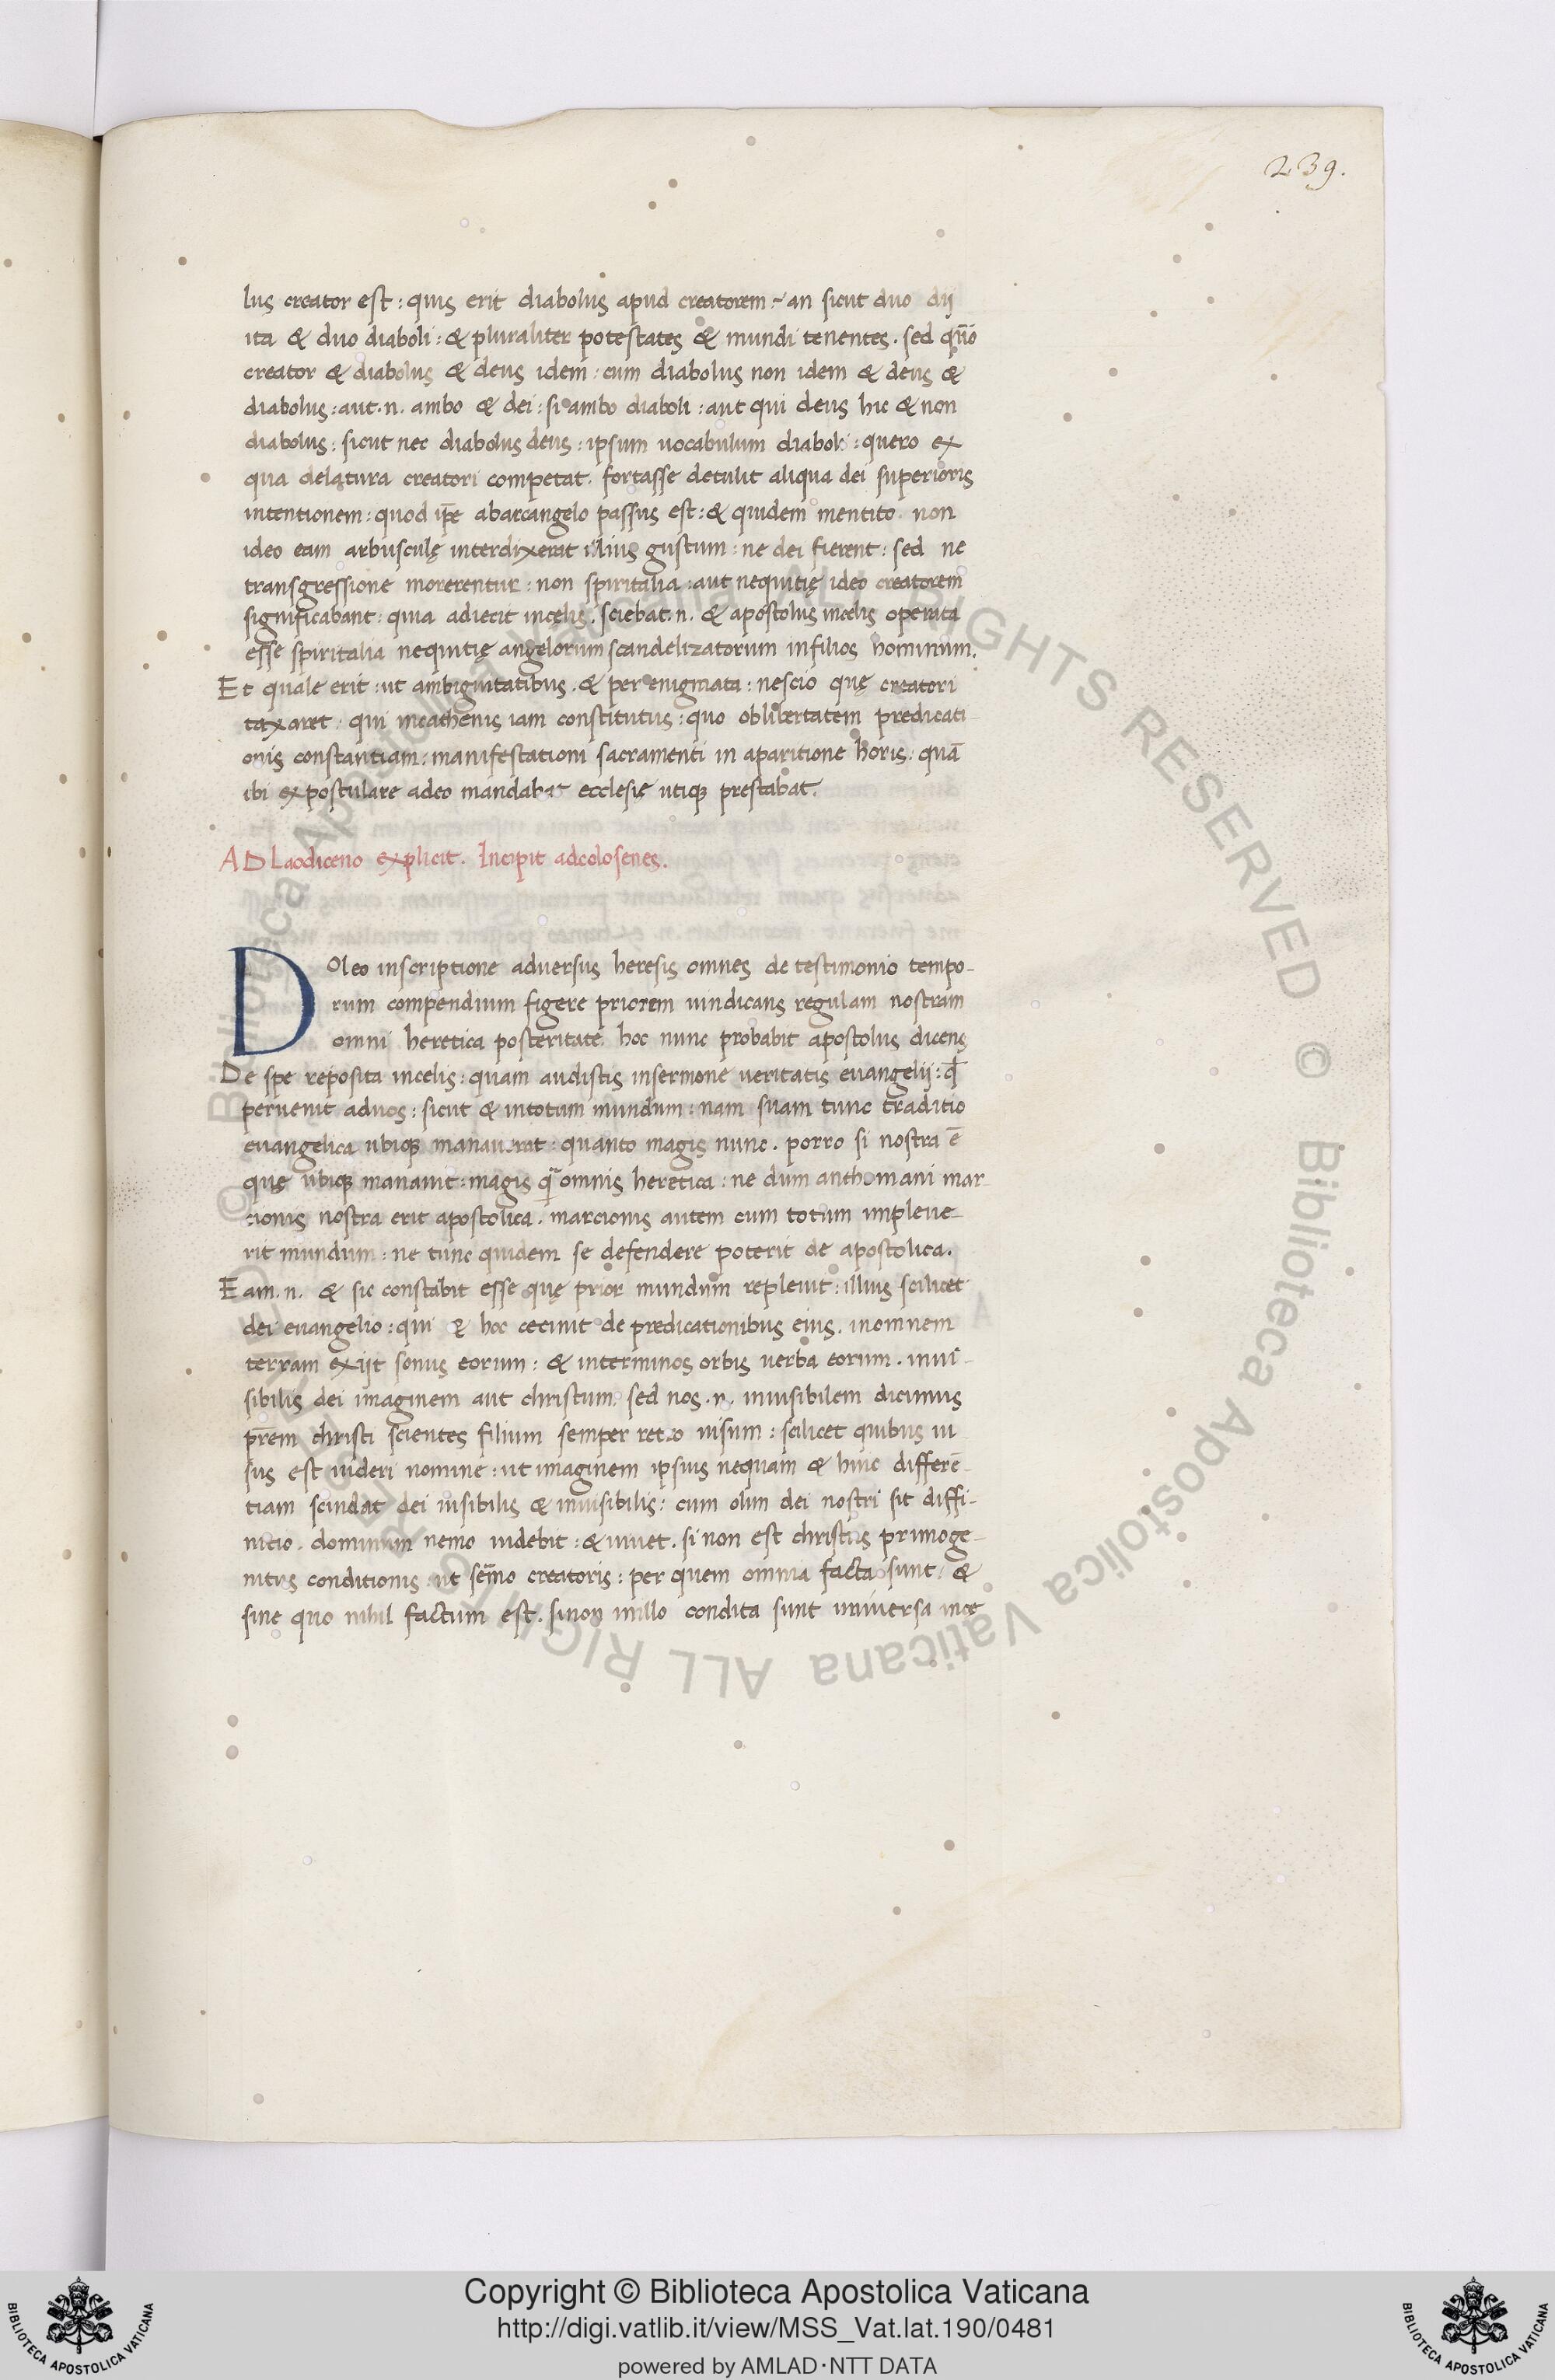 239.
lus creator est : quis erit diabolus apud creatorem ~ an sicut duo dij
ita & duo diaboli : & pluraliter potestates & mundi tenentes . sed quō
creator & diabolus & deus idem : cum diabolus non idem & deus &
diabolus : aut . n . ambo & dei : si ambo diaboli : aut qui deus hic & non
diabolus : sicut nec diabolus deus : ipsum uocabulum diaboli : quero ex
qua delatura creatori competat . fortasse detulit aliqua dei superioris
intentionem : quod ip̄e abarcangelo passus est : & quidem mentito . non
ideo eam arbusculę interdixerat illius gustum : ne dei fierent : sed ne
transgressione morerentur : non spiritalia : aut nequitię ideo creatorem
significabant : quia adiecit incelis . sciebat . n . & apostolus incelis operata
esse spiritalia nequitię angelorum scandelizatorum infilios hominum .
Et quale erit : ut ambiguitatibus . & per enigmata : nescio quę creatori
taxaret : qui incathenis iam constitutus : quo oblibertatem predicati-
onis constantiam : manifestationi sacramenti in aparitione horis : quā
ibi expostulare adeo mandabat ecclesię utiqȝ prestabat .
AD Laodiceno explicit . Incipit adcolosenes .
DOleo inscriptione adversus heresis omnes de testimonio tempo-
rum compendium figere priorem uindicans regulam nostram
omni heretica posteritate . hoc nunc probabit apostolus dicens
De spe reposita incelis : quam audistis insermone ueritatis euangelij : qđ
peruenit aduos : sicut & intotum mundum : nam suam tunc traditio
euangelica ubiqȝ manauerat : quanto magis nunc . porro si nostra ē
quę ubiqȝ manauit : magis q̄ omnis heretica : ne dum anthomani mar-
cionis nostra erit apostolica . marcionis autem cum totum impleue-
rit mundum : ne tunc quidem se defendere poterit de apostolica .
Eam . n . & sic constabit esse quę prior mundum repleuit : illius scilicet
dei euangelio : qui & hoc cecinit de predicationibus eius . inomnem
terram exijt sonus eorum : & interminos orbis uerba eorum . inui-
sibilis dei imaginem aut christum . sed nos . n . inuisibilem dicimus
prēm christi scientes filium semper retro uisum : scilicet quibus ui
sus est uideri nomine : ut imaginem ipsius nequam & hinc differē-
tiam scindat dei uisibilis & inuisibilis : cum olim dei nostri sit diffi-
nitio . dominum nemo uidebit : & uiuet . si non est christus primoge-
nitus conditionis ut sem̄o creatoris : per quem omnia facta sunt : &
sine quo nihil factum est . sinon inillo condita sunt universa ince
© Biblioteca Apostolica Vaticana ALL RIGHTS RESERVED © Biblioteca Apostolica Vaticana ALL RIGHTS RESERVED
Copyright © Biblioteca Apostolica Vaticana
http://digi.vatlib.it/view/MSS_Vat.lat.190/0481
powered by AMLAD·NTT DATA
BIBLIOTECA APOSTOLICA VATICANA
BIBLIOTECA APOSTOLICA VATICANA